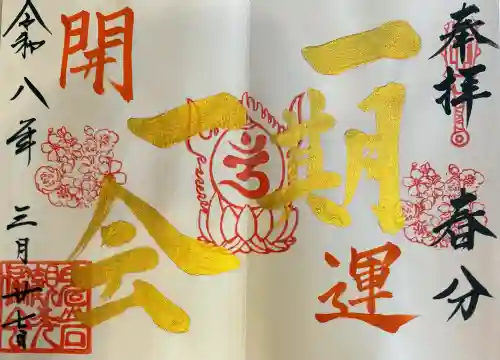 奉拝
春分
一期
一会
開運
令和八年
三月廿七日